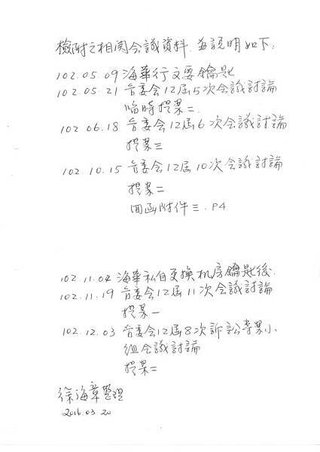 檢附之相関会議資料 為說明如下:
102.05.09 海華行文要鑰匙
102.05.21 管委会12屆5次会議討論
臨時提案二.
102.06.18 管委会12屆6次会議討論
提案三
102.10.15 管委会12屆10次会議討論
提案二
回函附件三.P4
102.11.04 海華私自更換机房鑰匙後
102.11.19 管委会12屆11次会議討論
提案一
102.12.03 管委会12屆8次訴訟專案小
組会議討論
提案二
徐海章整理
2016.03.20